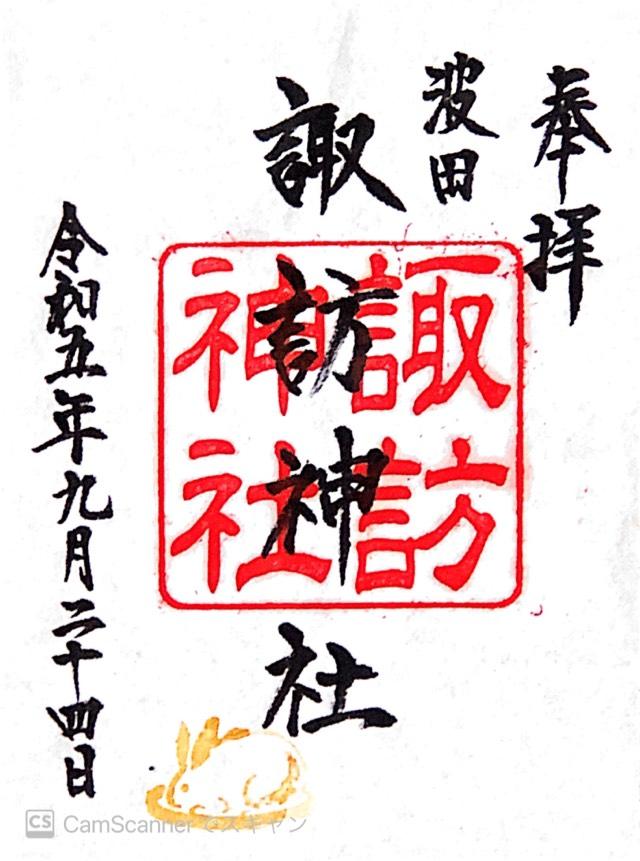 奉拝
波田
諏訪神社
諏訪
神社
令和五年九月二十四日
CS CamScanner でスキャン